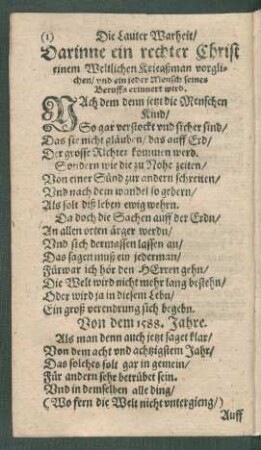 (1)
Die Lauter Warheit/
Darinne ein rechter Christ
einem Weltlichen Kriegßman vorgli-
chen/ vnd ein jeder Mensch seines
Beruffs erinnert wird.
NAch dem denn jetzt die Menschen
Kind/
So gar verstockt vnd sicher sind/
Das sie nicht gläuben/ das auff Erd/
Der grosse Richter kommen werd.
Sondern wie die zu Nohe zeiten/
Von einer Sünd zur andern schreiten/
Vnd nach dem wandel so gebern/
Als solt diß leben ewig wehrn.
Da doch die Sachen auff der Erdn/
An allen orten ärger werdn/
Vnd sich dermassen lassen an/
Das sagen muß ein jederman/
Fürwar ich hör den HErren gehn/
Die Welt wird nicht mehr lang bestehn/
Oder wird ja in diesem Lebn/
Ein groß verendrung sich begebn.
Von dem 1588. Jahre.
Als man denn auch jetzt saget klar/
Von dem acht vnd achtzigstem Jahr/
Das solches solt gar in gemein/
Für andern sehr betrübet sein.
Vnd in demselben alle ding/
(Wo fern die Welt nicht vntergieng/)
Auff